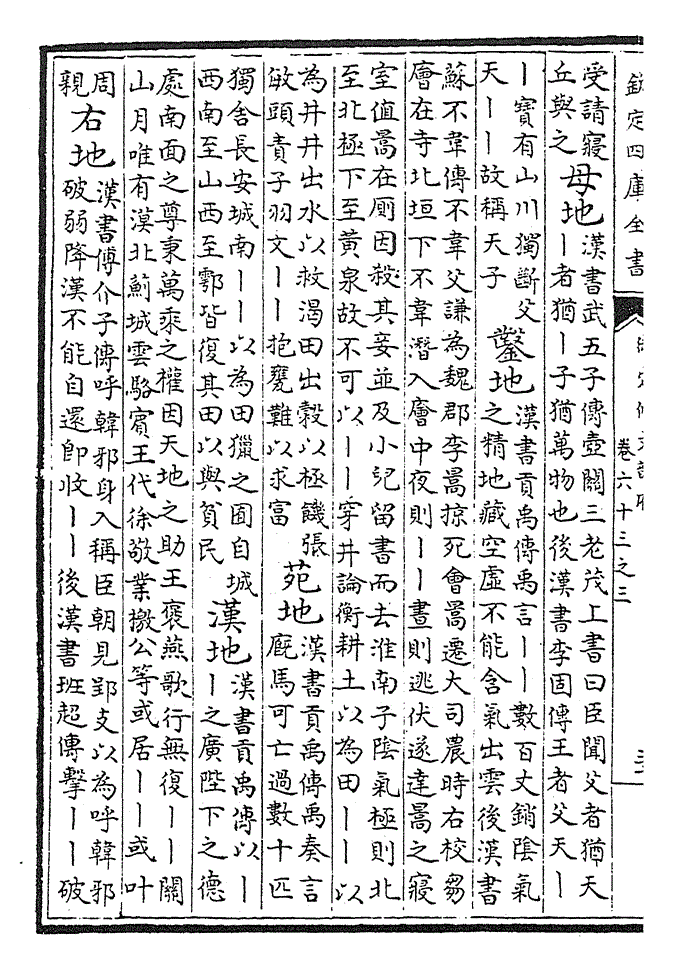 欽定四庫全書
卷六十三之三
受請寢
丘與之
母地
漢書武五子傳壺關三老茂上書曰臣聞父者猶天
丨者猶丨子猶萬物也後漢書李固傳王者父天丨
丨寶有山川獨斷父
天丨丨故稱天子
鑿地
漢書貢禹傳禹言丨丨數百丈銷陰氣
之精地藏空虛不能含氣出雲後漢書
蘇不韋傳不韋父謙為魏郡李暠掠死會暠遷大司農時右校芻
廥在寺北垣下不韋潛入廥中夜則丨丨晝則逃伏遂達暠之寢
室值暠在厠因殺其妾並及小兒留書而去淮南子陰氣極則北
至北極下至黃泉故不可以丨丨穿井論衡耕土以為田丨丨以
為井井出水以救渴田出穀以極饑張
敏頭責子羽文丨丨抱甕難以求富
苑地
漢書貢禹傳禹奏言
廐馬可亡過數十匹
獨舍長安城南丨丨以為田獵之囿自城
西南至山西至鄠皆復其田以與貧民
漢地
漢書貢禹傳以丨
丨之廣陛下之德
處南面之尊秉萬乘之權因天地之助王褒燕歌行無復丨丨關
山月唯有漠北薊城雲駱賓王代徐敬業檄公等或居丨丨或叶
周
親
右地
漢書傅介子傳呼韓邪身入稱臣朝見郅支以為呼韓邪
破弱降漢不能自還即收丨丨後漢書班超傳擊丨丨破